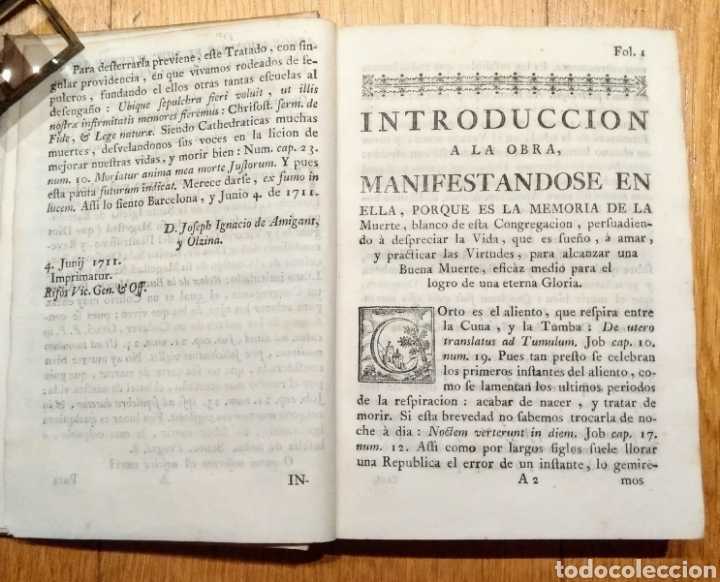 Para desterrarla previene, este Tratado, con sin-
gular providencia, en que vivamos rodeados de se-
pulcros, fundando el ellos otras tantas escuelas al
desengaño : Ubique sepulchra fieri voluit, ut illis
nostræ infirmitatis memores fieremus : Chrisost. serm. de
Fide, & Lege naturæ. Siendo Cathedraticas muchas
muertes, desvelandonos sus voces en la licion de
mejorar nuestras vidas, y morir bien : Num. cap. 23.
num. 10. Moriatur anima mea morte Justorum. Y pues
en esta pauta futurum indicat. Merece darse, ex fumo in
lucem. Assi lo siento Barcelona, y Junio 4. de 1711.
D. Joseph Ignacio de Amigant,
y Olzina.
4. Junij 1711.
Imprimatur.
Rifòs Vic. Gen. & Off.
IN-
Fol. 1
INTRODUCCION
A LA OBRA,
MANIFESTANDOSE EN
ELLA, PORQUE ES LA MEMORIA DE LA
Muerte, blanco de esta Congregacion, persuadien-
do à despreciar la Vida, que es sueño, à amar,
y practicar las Virtudes, para alcanzar una
Buena Muerte, eficàz medio para el
logro de una eterna Gloria.
COrto es el aliento, que respira entre
la Cuna, y la Tumba : De utero
translatus ad Tumulum. Job cap. 10.
num. 19. Pues tan presto se celebran
los primeros instantes del aliento, co-
mo se lamentan los ultimos periodos
de la respiracion : acabar de nacer, y tratar de
morir. Si esta brevedad no sabemos trocarla de no-
che à dia : Noctem verterunt in diem. Job cap. 17.
num. 12. Assi como por largos siglos suele llorar
una Republica el error de un instante, lo gemire-
A 2
mos
todocoleccion